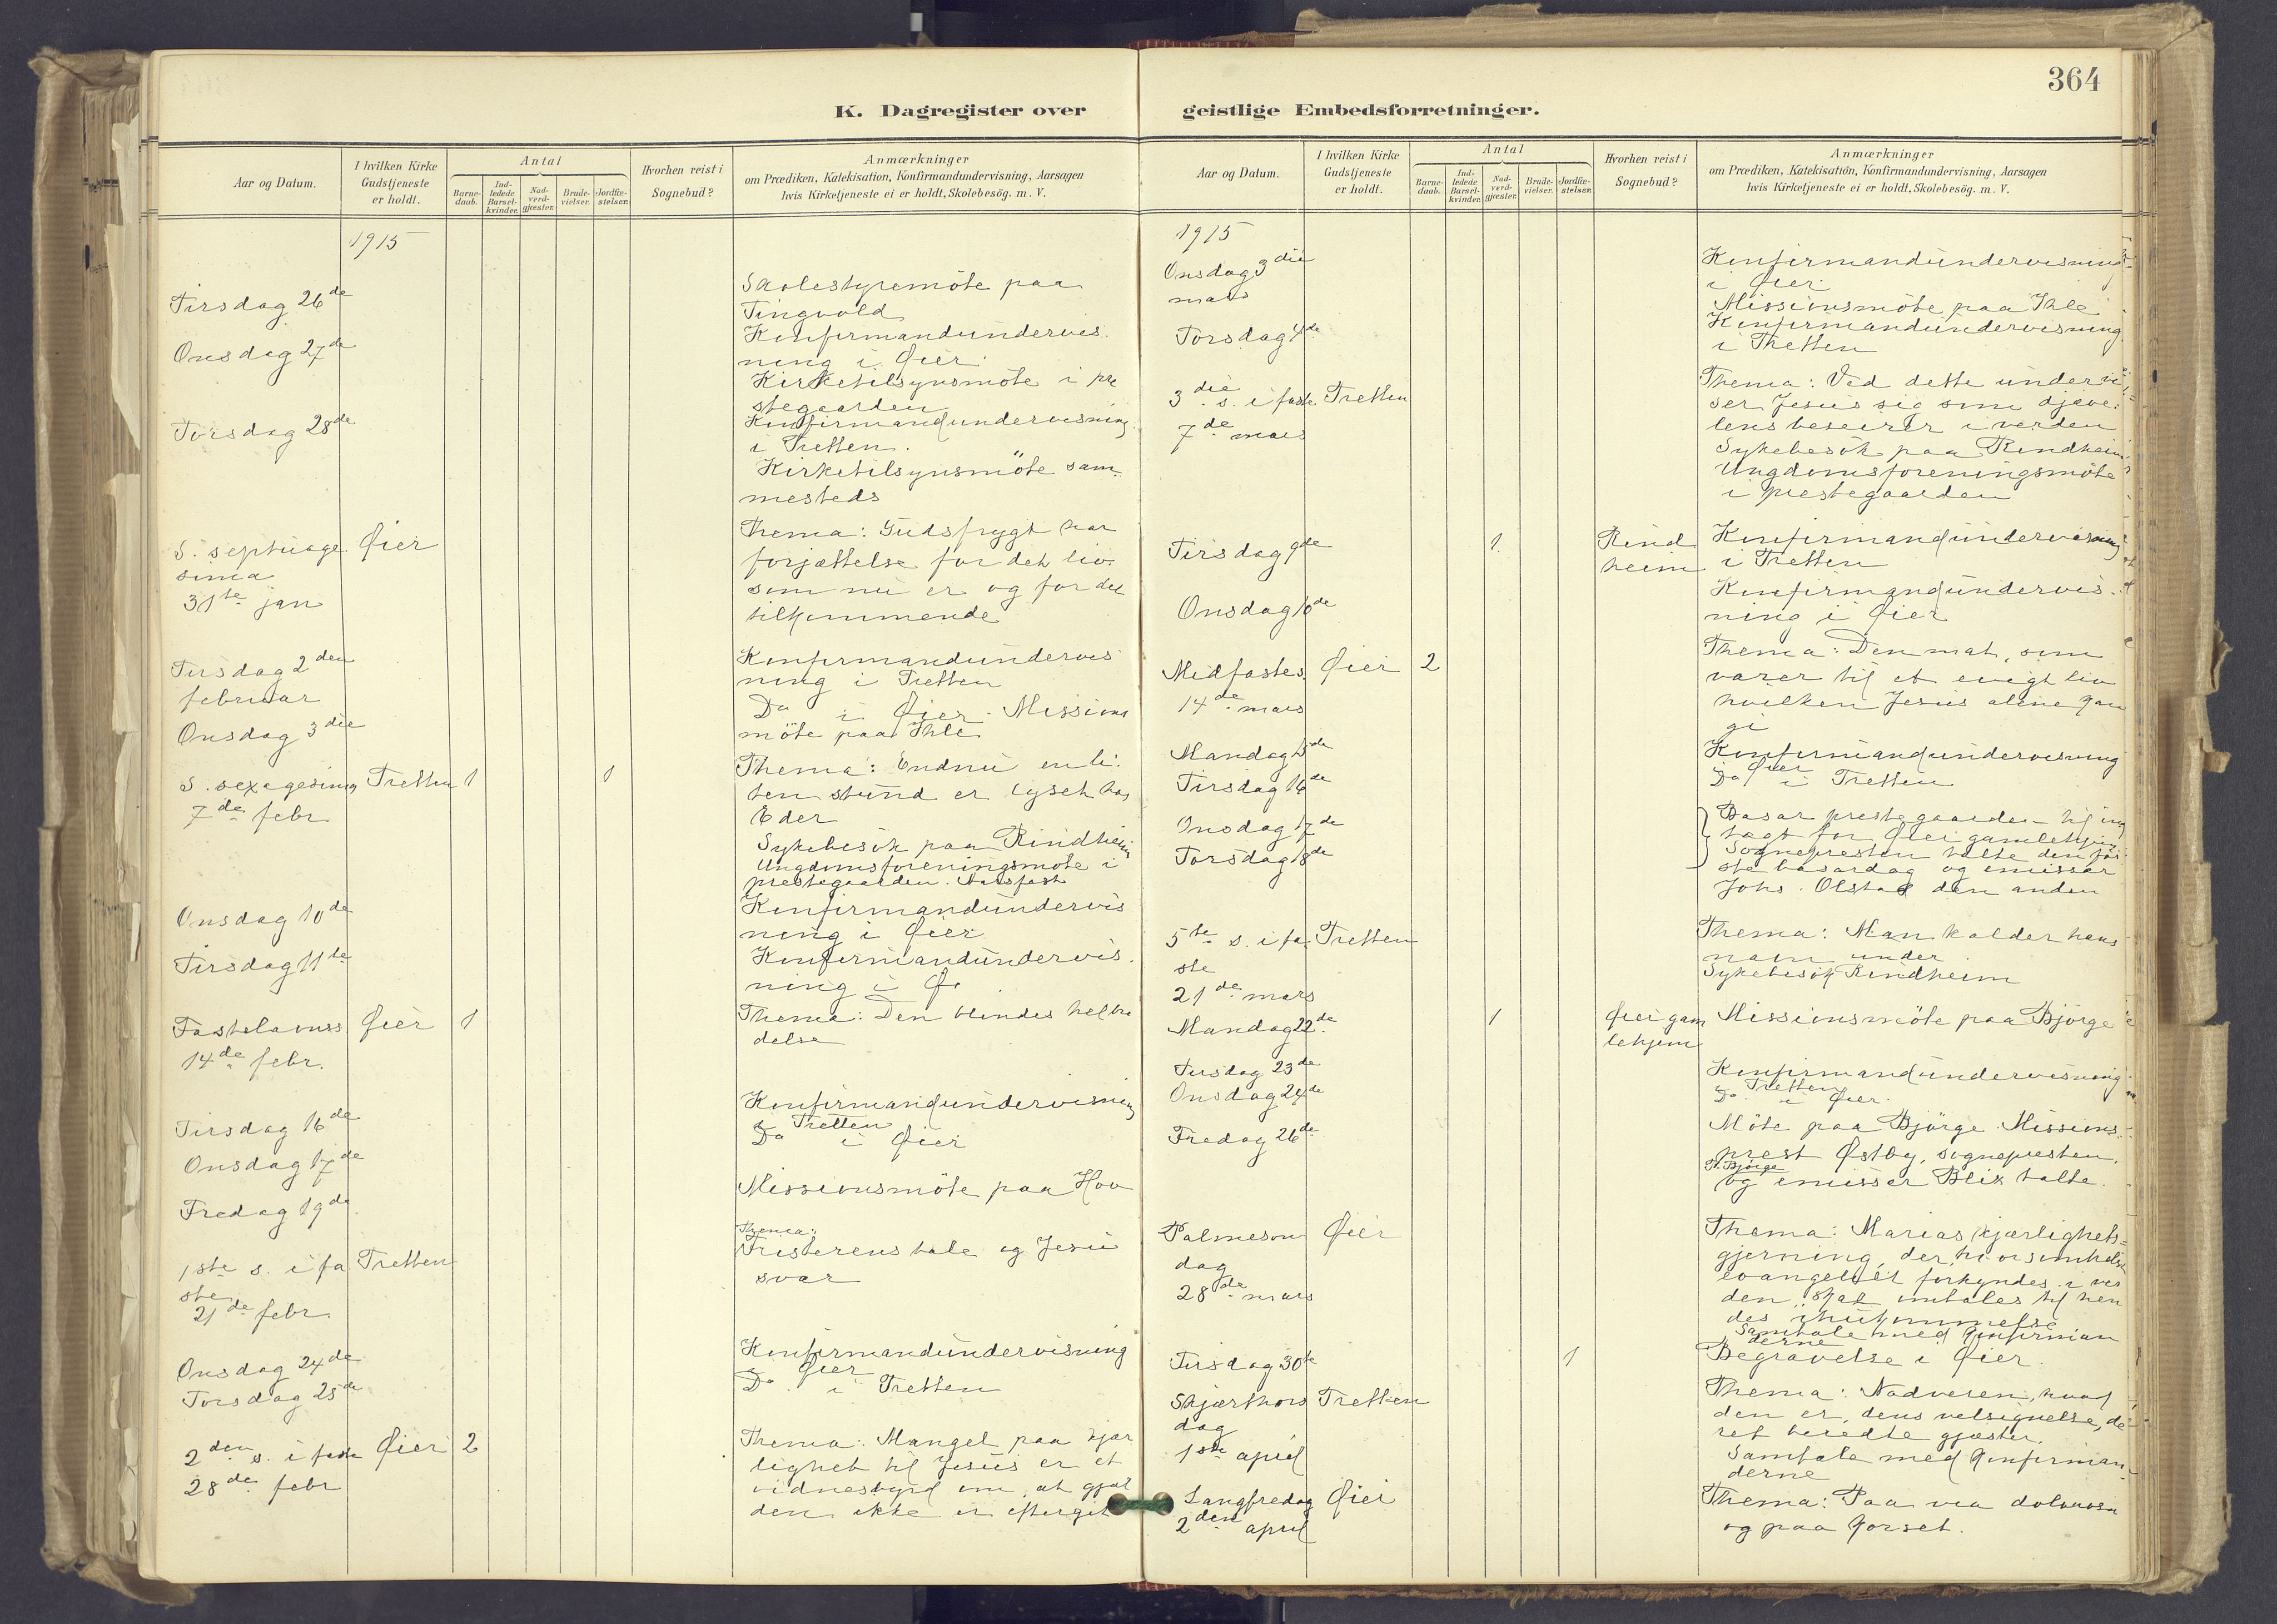 364
K. Dagregister over geistlige Embedsforretninger.
Aar og Datum.
I hvilken Kirke
Gudstjeneste
er holdt.
Antal
Barne-
daab.
Ind-
ledede
Barsel-
kvinder.
Nad-
verd-
gjæster.
Brude-
vielser.
Jordfæ-
stelser.
Hvorhen reist i
Sognebud?
Anmærkninger
om Prædiken, Katekisation, Konfirmandundervisning, Aarsagen
hvis Kirketjeneste ei er holdt, Skolebesög. m. V.
1915
Tirsdag 26de
Skolestyremöte paa
Tingvold
Onsdag 27de
Konfirmandundervis
ning i Øier.
Kirketilsynsmöte i pre
stegaarden
Torsdag 28de
Konfirmandundervisning
i Tretten.
Kirketilsynsmöte sam-
mesteds
S. septuage Øier
sima
31te jan
Thema: Gudsfrygt har
forjættelse for det liv
som nu er og for det
tilkommende
Tirsdag 2den
februar
Konfirmandundervis
ning i Tretten
Onsdag 3die
Do i Øier. Missions
möte paa Ihle
S. sexagesima Tretten 1 1
7de febr
Thema: Endnu en li-
ten stund er lyset hos
Eder
Sykebesök paa Rindheim
Ungdomsforeningsmöte i
prestegaarden.
Onsdag 10de
Konfirmandundervis
ning i Øier
Tirsdag 11te
Konfirmandundervis.
ning i
Fastelavnss Øier 1
14de febr.
Thema: Den blindes helbre
delse
Tirsdag 16de
Konfirmandundervisning
i Tretten
Onsdag 17de
Do i Øier
Fredag 19de
Missionsmöte paa Hov
1ste s. i fa Tretten
ste
21de febr
Thema:
Fristerens tale og Jesu
svar
Onsdag 24de
Konfirmandundervisning
i Øier
Torsdag 25de
Do. i Tretten
2den s. i faste Øier 2
28de febr
Thema: Mangel paa kjær
lighet til Jesus er et
vidnesbyrd om, at gjæl
den ikke er eftergit
Aar og Datum.
I hvilken Kirke
Gudstjeneste
er holdt.
Antal
Barne-
daab.
Ind-
ledede
Barsel-
kvinder.
Nad-
verd-
gjæster.
Brude-
vielser.
Jordfæ-
stelser.
Hvorhen reist i
Sognebud?
Anmærkninger
om Prædiken, Katekisation, Konfirmandundervisning, Aarsagen
hvis Kirketjeneste ei er holdt, Skolebesög. m. V.
1915
Onsdag 3die
mars
Konfirmandundervisning
i Øier.
Missionsmöte paa Ihle
Torsdag 4de
Konfirmandundervisning
i Tretten
3die s. i faste Tretten
7de mars
Thema: Ved dette undervi
ser Jesus sig som djæve-
lens beseirer i verden
Sykebesök paa Rindheim
Ungdomsforeningsmöte
i prestegaarden
Tirsdag 9de 1 Rind
heim
Konfirmandundervisning
i Tretten
Onsdag 10de
Konfirmandundervis.
ning i Øier
Midfastes. Øier 2
14de mars
Thema: Den mat, som
varer til et evigt liv
hvilken Jesus alene kan
gi
Mandag 15de
Konfirmandundervisning
i Øier
Tirsdag 16de
Do i Tretten
Onsdag 17de
Torsdag 18de
Basar prestegaarden til ind
tægt for Øier gamlehjem
Sognepresten talte den før-
ste basardag og emissær
Johs. Olstad den anden
5te s. i fa Tretten
ste
21de mars
Thema: Man kalder hans
navn under
Sykebesök Rindheim
Mandag 22de 1 Øier gam
lehjem
Missionsmöte paa Bjørge
Tirsdag 23de
Konfirmandundervisning
i Tretten
Onsdag 24de
Do. i Øier.
Fredag 26de
Möte paa Bjørge. Missions-
prest Østby, sognepresten,
Bjørge
og emissær Blix talte.
Palmeson Øier
dag
28de mars
Thema: Marias kjærlighets-
gjerning, der, hvorsomhelst
evangeliet forkyndes i ver
den, skal omtales til hen
des ihukommelse
Samtale med konfirman
derne
Tirsdag 30te 1
Begravelse i Øier.
Skjærthors Tretten
dag
1ste april
Thema: Nadveren, hvad
den er, dens velsignelse, de
ret beredte gjæster.
Samtale med konfirman-
derne
Langfredag Øier
2den april
Thema: Paa via dolorosa
og paa korset.